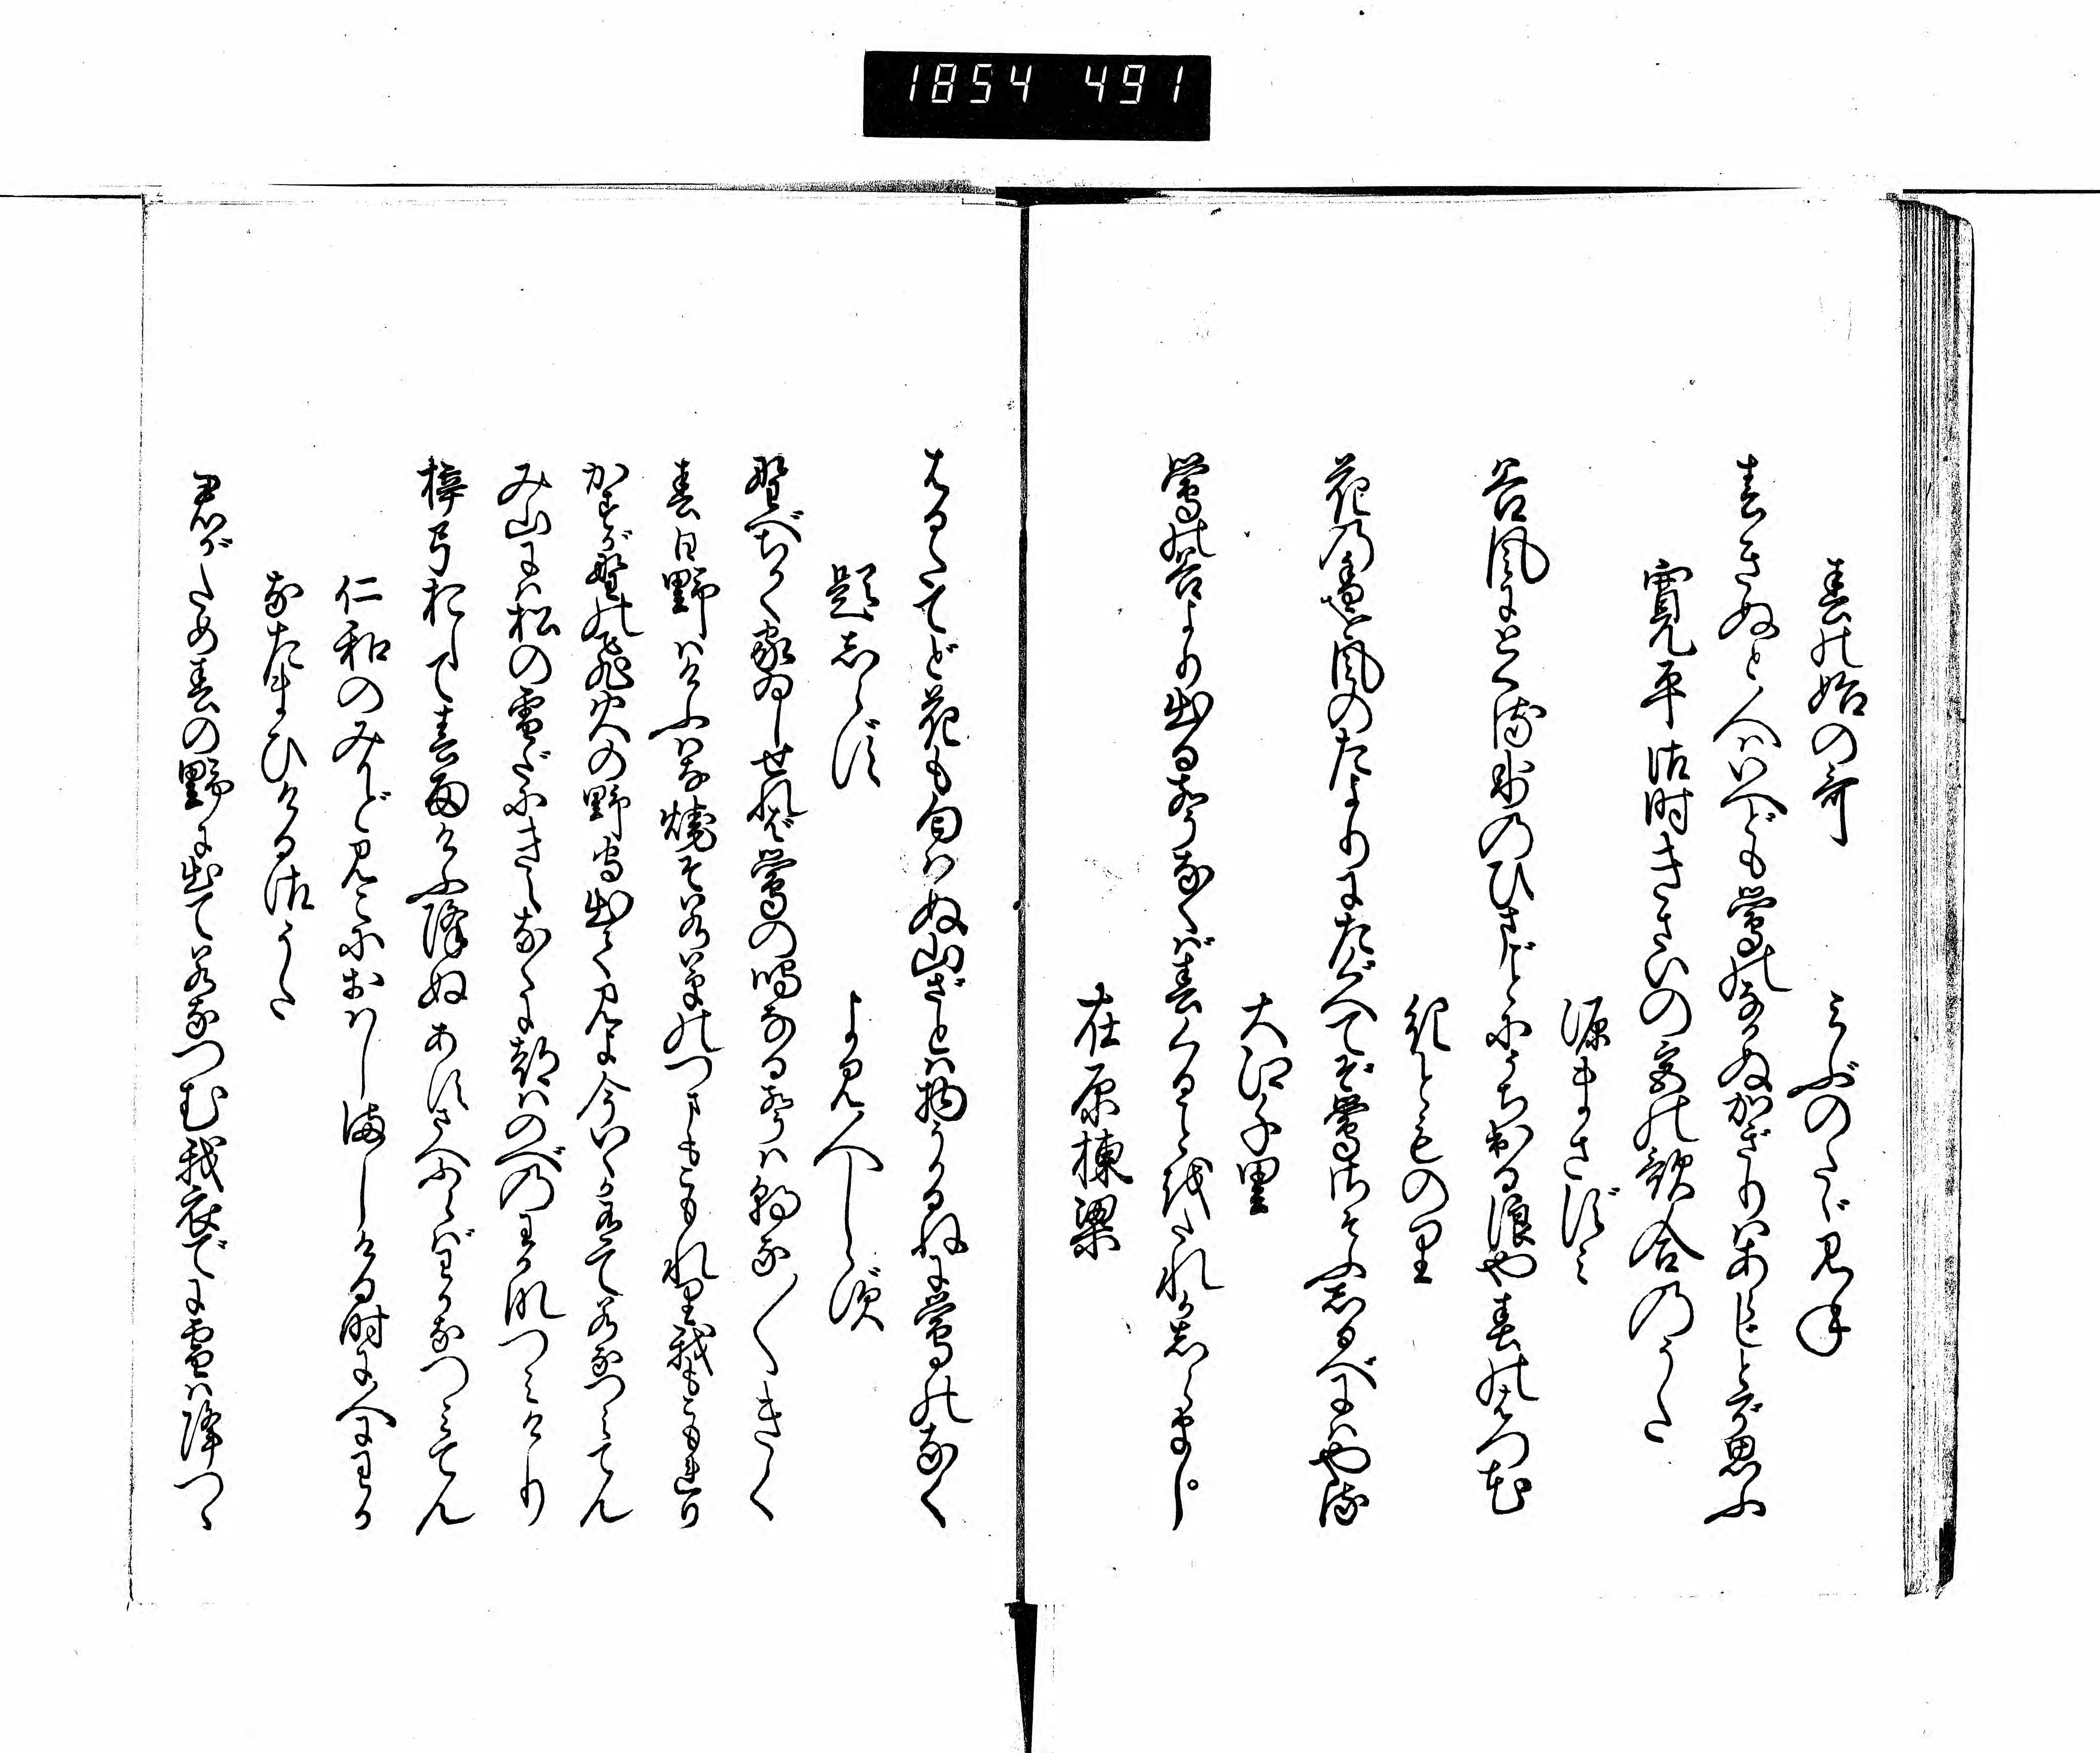 1854 491
春の始の哥　みぶのたゞみね
春きぬと人はいへども鶯のなかぬかぎりはあらじとぞ思ふ
寛平御時きさいの宮の歌合のうた
源まさずみ
谷風にとくる氷のひまごとにうち出る浪や春の初花
紀とものり
花の香を風のたよりにたぐへてぞ鶯さそふしるべにはやる
大江千里
鶯の谷より出る声なくば春くることをたれかしらまし
在原棟梁
はるたてど花も匂はぬ山ざとは物うかるねに鶯のなく
題しらず　よみ人しらず
野べちかく家ゐしせれば鶯の鳴なる声は朝な〱きく
春日野はけふはな焼そ若草のつまもこもれり我もこもれり
かすが野の飛火の野守出て見よ今いくか有て若なつみてん
み山には松の雪だにきえなくに都はのべのわかなつみけり
梓弓おして春雨けふ降ぬあすさへふらばわかなつみてん
仁和のみかど見こにおはしましける時に人にわか
なたまひける御うた
君がため春の野に出て若なつむ我衣でに雪は降つゝ